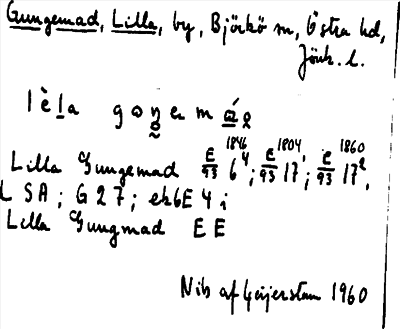 Gungemad, Lilla, by, Björkö sn, Östra hd,
Jönk. l.
lèla goŋema
Lilla Gungemad E/93 1846 6⁴; E/93 1804 17; E/93 1860 17²,
LSA; G27; ek6E4i
Lilla Gungmad EE
Nils af Geijerstam 1960